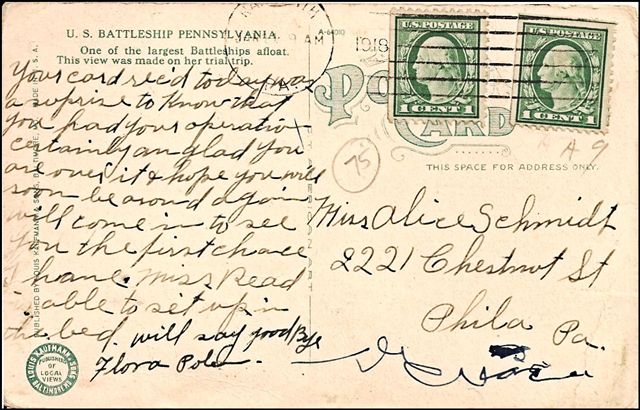 U. S. BATTLESHIP PENNSYLVANIA.
One of the largest Battleships afloat.
This view was made on her trial trip.
A-64010
AM
1918
PA.
U.S. POSTAGE
1 CENT 1
U.S. POSTAGE
1 CENT 1
POST
CARD
75
THIS SPACE FOR ADDRESS ONLY.
Your card rec'd today was
a suprise to know that
you had your operation
certainly am glad you
are over it & hope you will
soon be around again
will come in to see
you the first chance
I have. Miss Read
is able to set up in
the bed. will say good Bye
Flora
Miss Alice Schmidt
2221 Chestnut St
Phila Pa.
PUBLISHED BY LOUIS KAUFMANN & SONS, BALTIMORE, MD.
LOUIS KAUFMANN & SONS
BALTIMORE, MD.
PUBLISHERS
OF
LOCAL
VIEWS